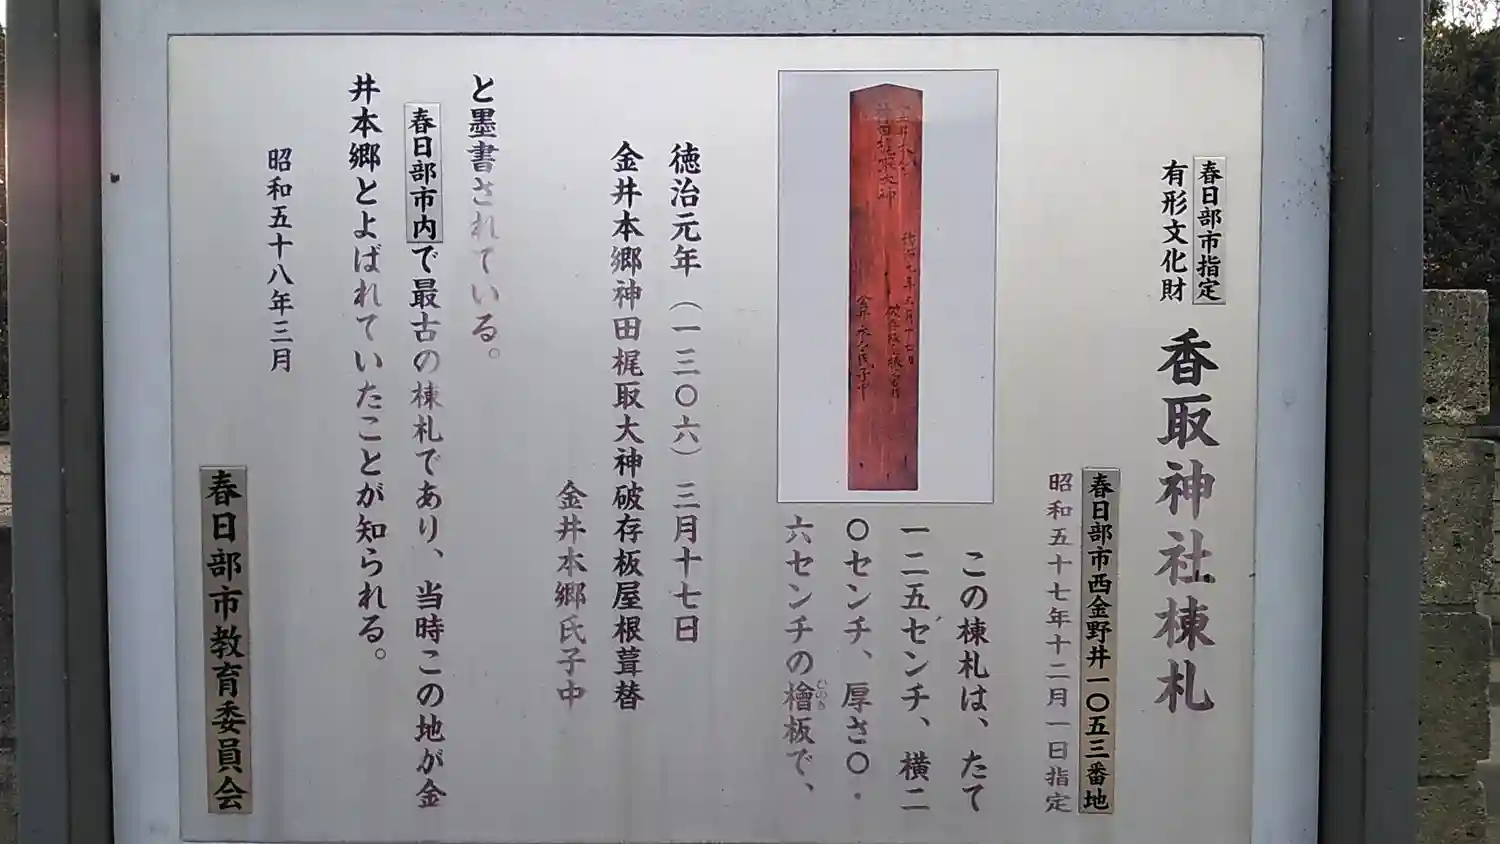 春日部市指定
有形文化財
香取神社棟札
春日部市西金野井一〇五三番地
昭和五十七年十二月一日指定
この棟札は、たて
一二五センチ、横二
〇センチ、厚さ〇・
六センチの檜板で、
ひのき
徳治元年（一三〇六）三月十七日
金井本郷神田梶取大神破存板屋根葺替
金井本郷氏子中
と墨書されている。
春日部市内で最古の棟札であり、当時この地が金
井本郷とよばれていたことが知られる。
昭和五十八年三月
春日部市教育委員会